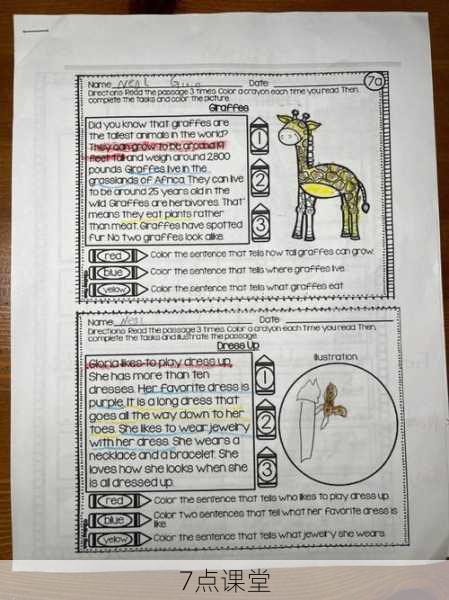 Name: Neal Date:
7a
Directions: Read the passage 3 times. Color a crayon each time you read. Then,
complete the tasks and color the picture.
Giraffes
Did you know that giraffes are
the tallest animals in the world?
They can grow to be around 19
feet tall and weigh around 2,800
pounds. Giraffes live in the
grasslands of Africa. They can live
to be around 25 years old in the
wild. Giraffes are herbivores. That
means they eat plants rather
than meat. Giraffes have spotted
fur. No two giraffes look alike.
1
2
3
red Color the sentence that tells how tall giraffes can grow.
blue Color the sentence that tells where giraffes live.
yellow Color the sentence that tells what giraffes eat.
Name: Neal Date:
Directions: Read the passage 3 times. Color a crayon each time you read. Then,
complete the tasks and illustrate the passage.
Dress Up
Gloria likes to play dress up.
She has more than ten
dresses. Her favorite dress is
purple. It is a long dress that
goes all the way down to her
toes. She likes to wear jewelry
with her dress. She wears a
necklace and a bracelet. She
loves how she looks when she
is all dressed up.
1
2
3
Illustration
red Color the sentence that tells who likes to play dress up.
blue Color two sentences that tell what her favorite dress is
like.
yellow Color the sentence that tells what jewelry she wears.
7点课堂